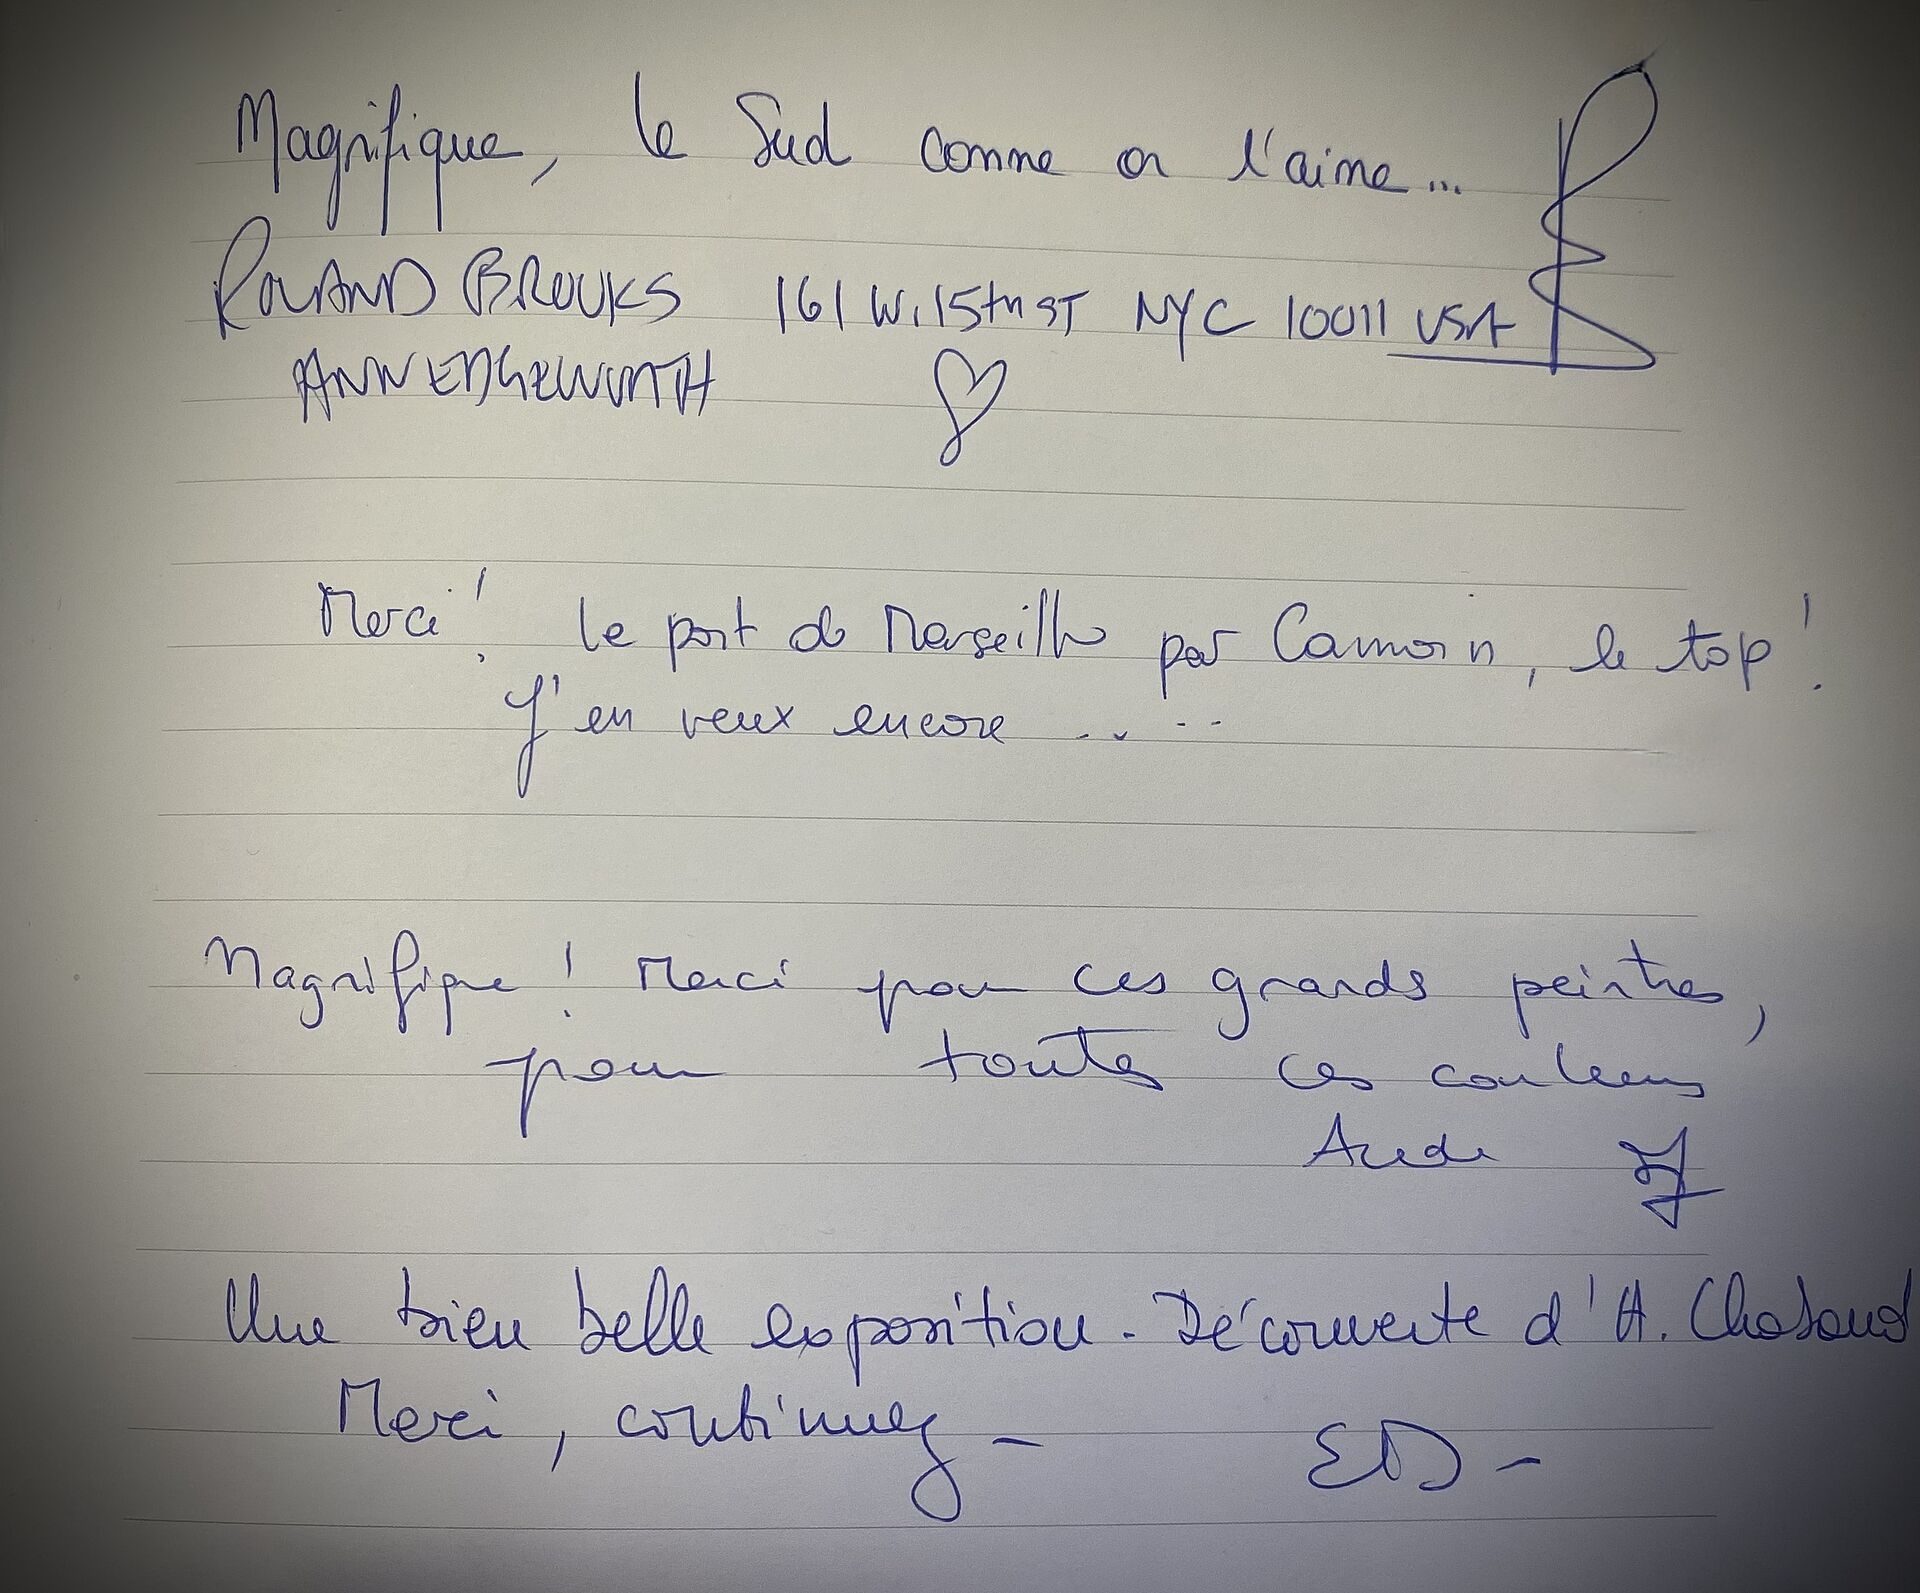 Magnifique, le Sud comme on l'aime...
ROLAND BROOKS 161 W. 15th ST NYC 10011 USA
ANN EDGEWORTH
Merci ! le port de Marseille par Camoin, le top !
J'en veux encore .. ..
Magnifique ! Merci pour ces grands peintres,
pour toutes ces couleurs
Aude
Une bien belle exposition. Découverte d'A. Chabaud
Merci, continuez -
ED -